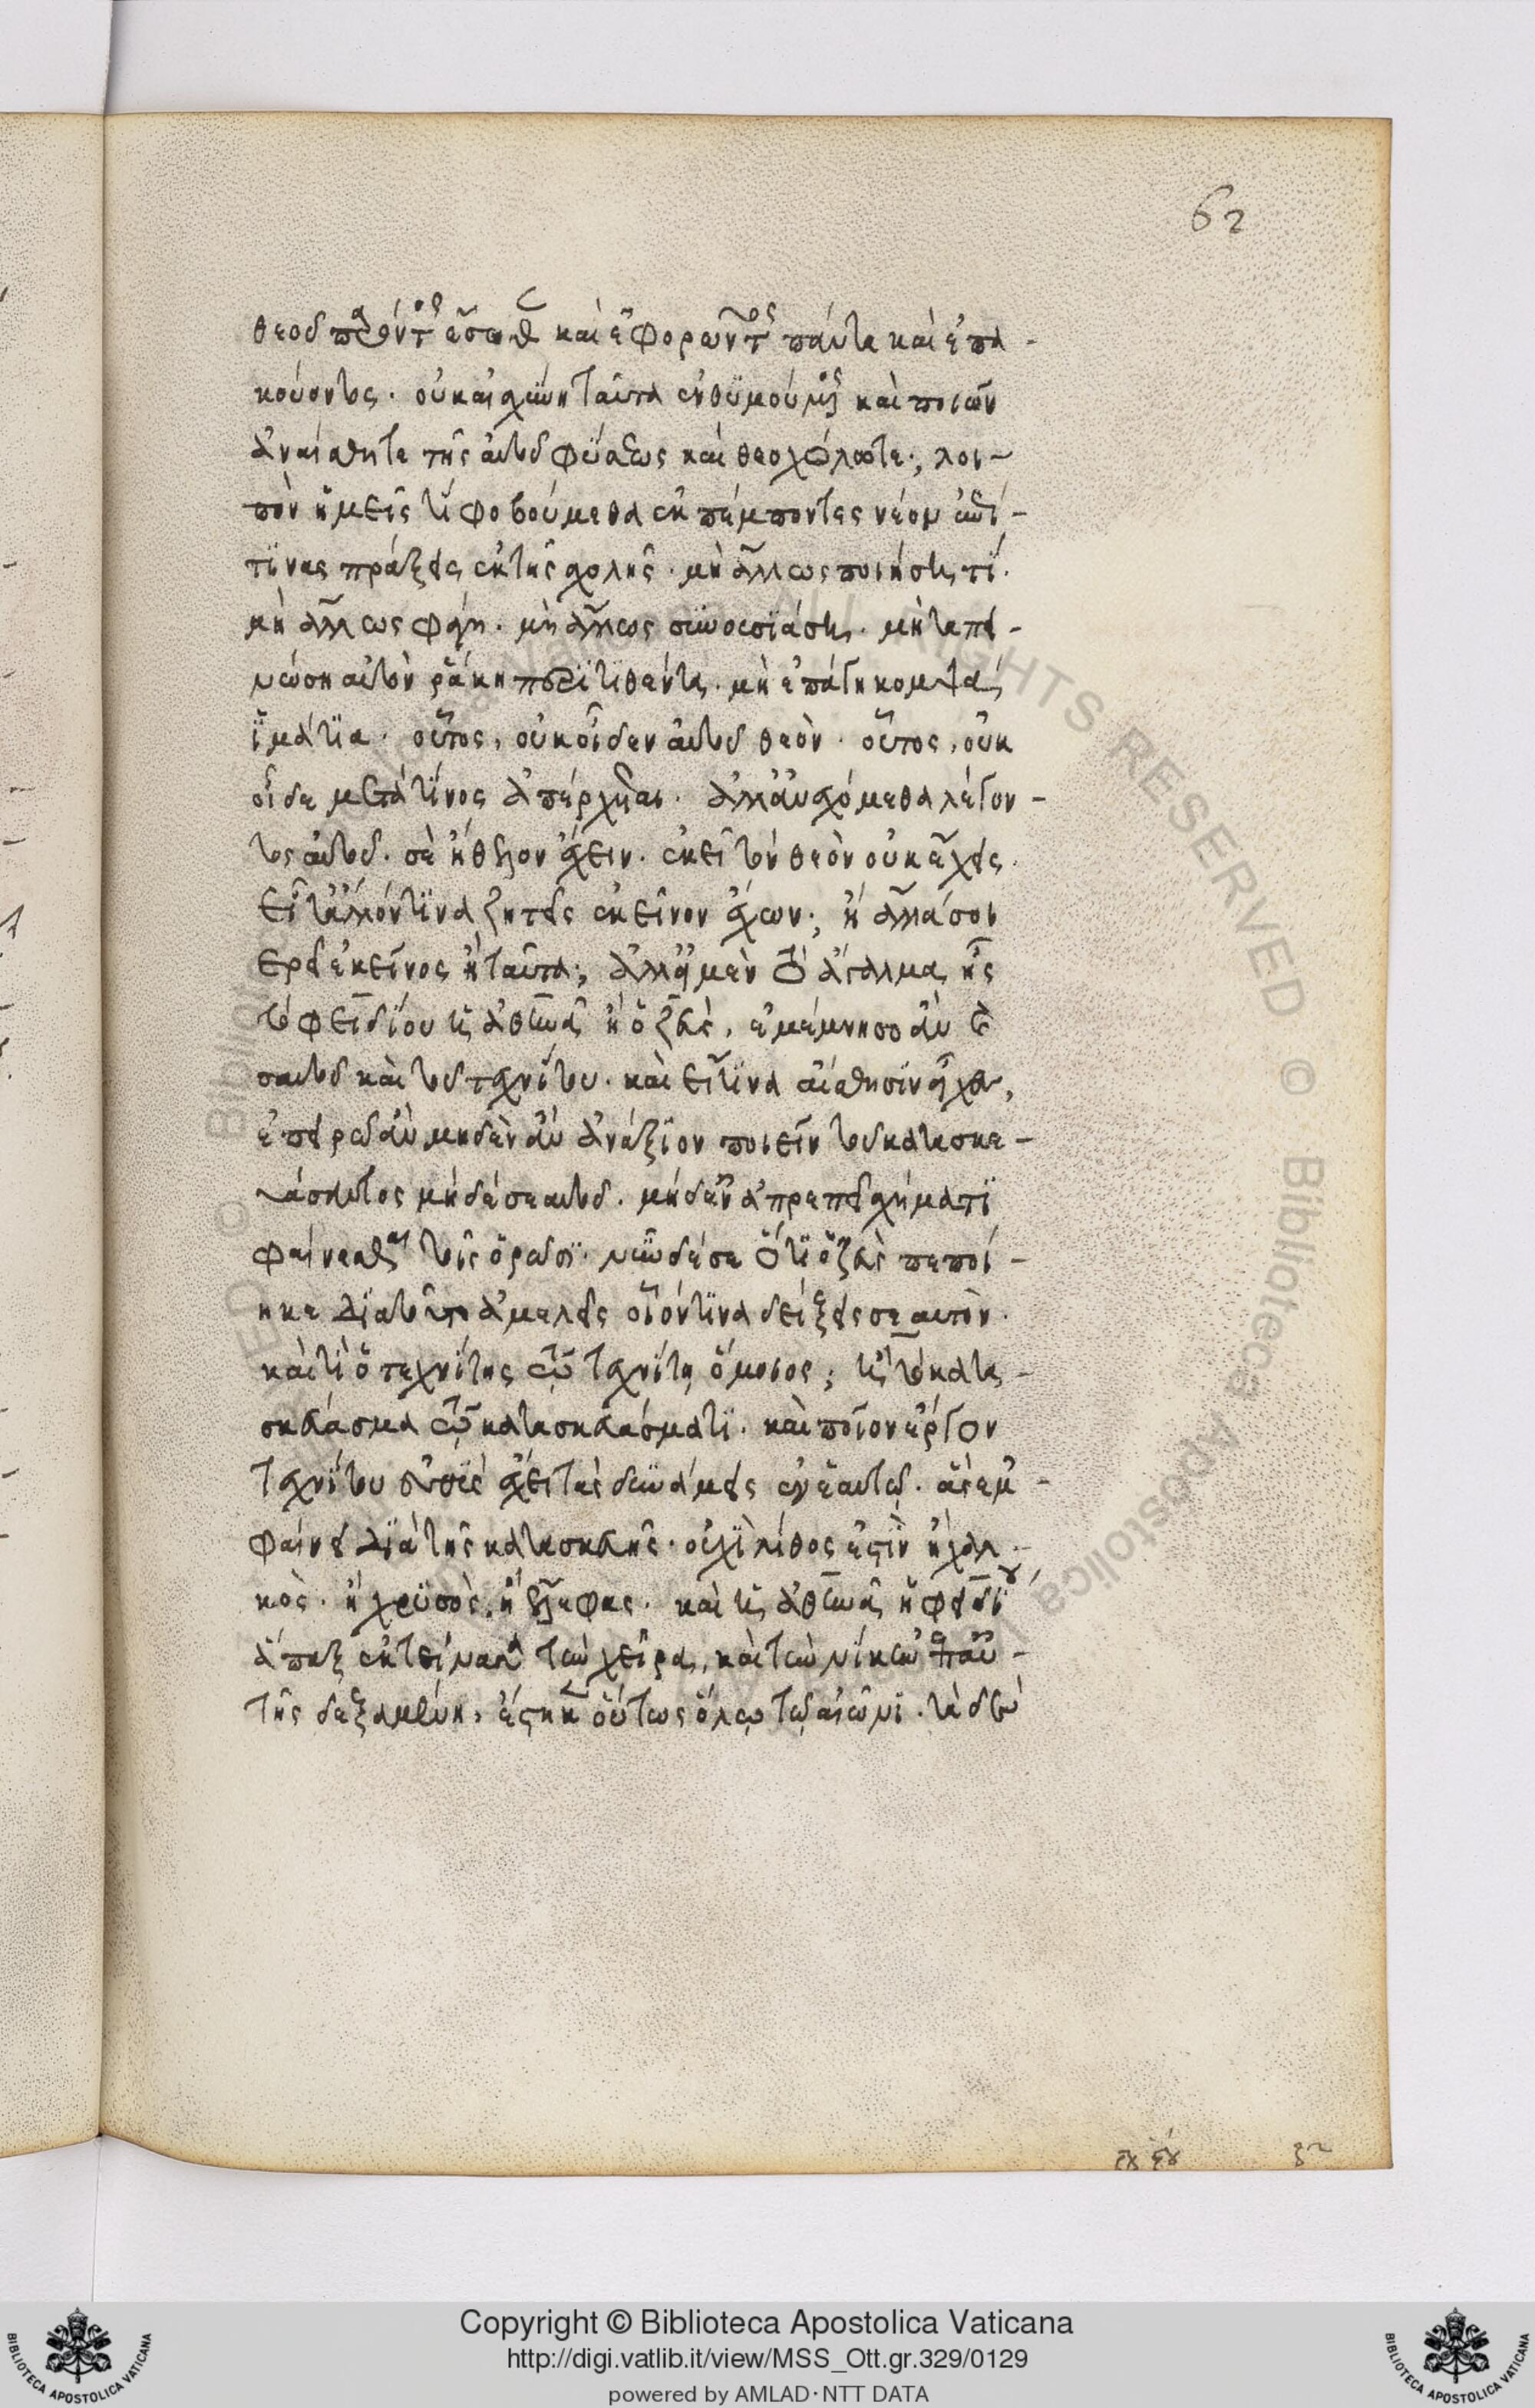 62
θεοῦ παρόντος ἔσωθεν καὶ ἐφορῶντος πάντα καὶ ἐπα-
κούοντος. οὐκ αἰσχύνη ταῦτα ἐνθυμούμενος καὶ ποιῶν
ἀναίσθητε τῆς αὑτοῦ φύσεως καὶ θεοχόλωτε; λοι-
πὸν ἡμεῖς τί φοβούμεθα ἐκπέμποντες νέον ἐπί
τινας πράξεις ἐκ τῆς σχολῆς. μὴ ἄλλως ποιήση τί.
μὴ ἄλλως φάγη. μὴ ἄλλως συνουσιάση. μὴ ταπει-
νώση αὐτὸν ῥάκη περιτιθέντα. μὴ ἐπάρη κομψὰ
ἱμάτια. οὗτος, οὐκ οἶδεν αὑτοῦ θεὸν. οὗτος, οὐκ
οἶδε μετὰ τίνος ἀπέρχεται. ἀλλ' ἀνεχόμεθα λέγον-
τος αὐτοῦ. σὲ ἤθελον ἔχειν. ἐκεῖ τὸν θεὸν οὐκ ἔχεις.
εἶτ' ἄλλόν τινα ζητεῖς ἐκεῖνον ἔχων; ἢ ἄλλα σοι
ἐρεῖ ἐκεῖνος ἢ ταῦτα; ἀλλ' εἰ μὲν τὸ ἄγαλμα ἦς
τὸ φειδίου ἡ ἀθηνᾶ ἢ ὁ ζεὺς, ἐμέμνησο ἂν καὶ
σαυτοῦ καὶ τοῦ τεχνίτου. καὶ εἴ τινα αἴσθησιν εἶχες,
ἐπειρῶ ἂν μηδὲν ἂν ἀνάξιον ποιεῖν τοῦ κατασκε-
υάσαντος μηδὲ σεαυτοῦ. μηδ' ἐν ἀπρεπεῖ σχήματι
φαίνεσθαι τοῖς ὁρῶσι. νῦν δέ σε ὅτι ὁ ζεὺς πεποί-
ηκε διὰ τοῦτο ἀμελεῖς οἷόν τινα δείξεις σεαυτὸν.
καὶ τί ὁ τεχνίτης τῷ τεχνίτῃ ὅμοιος; ἢ τὸ κατα-
σκεύασμα τῷ κατασκευάσματι. καὶ ποῖον ἔργον
τεχνίτου εὐθὺς ἔχει τὰς δυνάμεις ἐν ἑαυτῷ. ἃς ἐμ-
φαίνει διὰ τῆς κατασκευῆς. οὐχὶ λίθος ἐστὶν ἢ χαλ-
κὸς. ἢ χρυσὸς. ἢ ἐλέφας. καὶ ἡ ἀθηνᾶ ἡ φειδίου
ἅπαξ ἐκτείνασα τὴν χεῖρα, καὶ τὴν νίκην ἐπ' αὐ-
τῆς δεξαμένη, ἕστηκεν οὕτως ὅλῳ τῷ αἰῶνι. τὰ δὲ
Copyright © Biblioteca Apostolica Vaticana
http://digi.vatlib.it/view/MSS_Ott.gr.329/0129
powered by AMLAD·NTT DATA